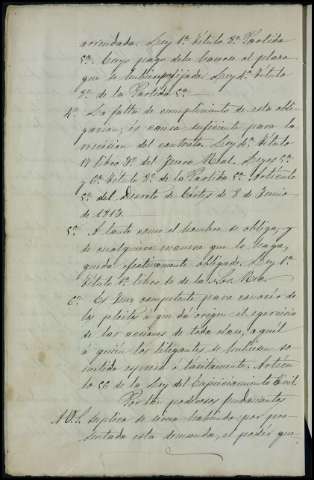 arrendada. Ley 1ª Título 8º Partida
5ª. Cuyo pago debe hacerse al plazo
que se hubiere fijado. Ley 4ª Título
8º de la Partida 5ª.
4º La falta de cumplimiento de esta obli-
gacion, es causa suficiente para la
rescision del contrato. Ley 6ª Título
17 libro 3º del Fuero Real. Leyes 5ª
y 6ª Título 8º de la Partida 5ª. Artículo
5º del decreto de Cortes de 8 de Junio
de 1813.
5º A tanto como el hombre se obliga, y
de cualquiera manera que lo haga,
queda efectivamente obligado. Ley 1ª
Título 1º libro 10 de la Nov. Rec.
6º Es Juez competente para conocer de
los pleitos á que dá origen el ejercicio
de las acciones de toda clase, aquel
á quien los litigantes se hubieren so-
metido espresa ó tacitamente. Artícu-
lo 56 de la Ley del Enjuiciamiento Civil.
Por los poderosos fundamentos
A V. S. suplico se sirva habiendo por pre-
sentada esta demanda, el poder que